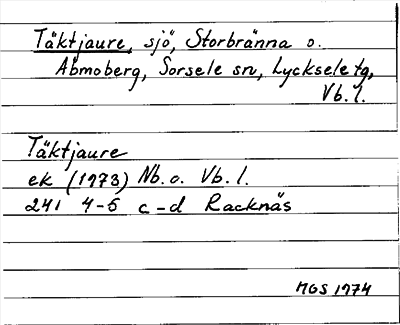 Täktjaure, sjö, Storbränna o.
Abmoberg, Sorsele sn, Lycksele tg,
Vb. l.
Täktjaure
ek (1973) Nb. o. Vb. l.
241 4-5 c-d Racknäs
MGS 1974